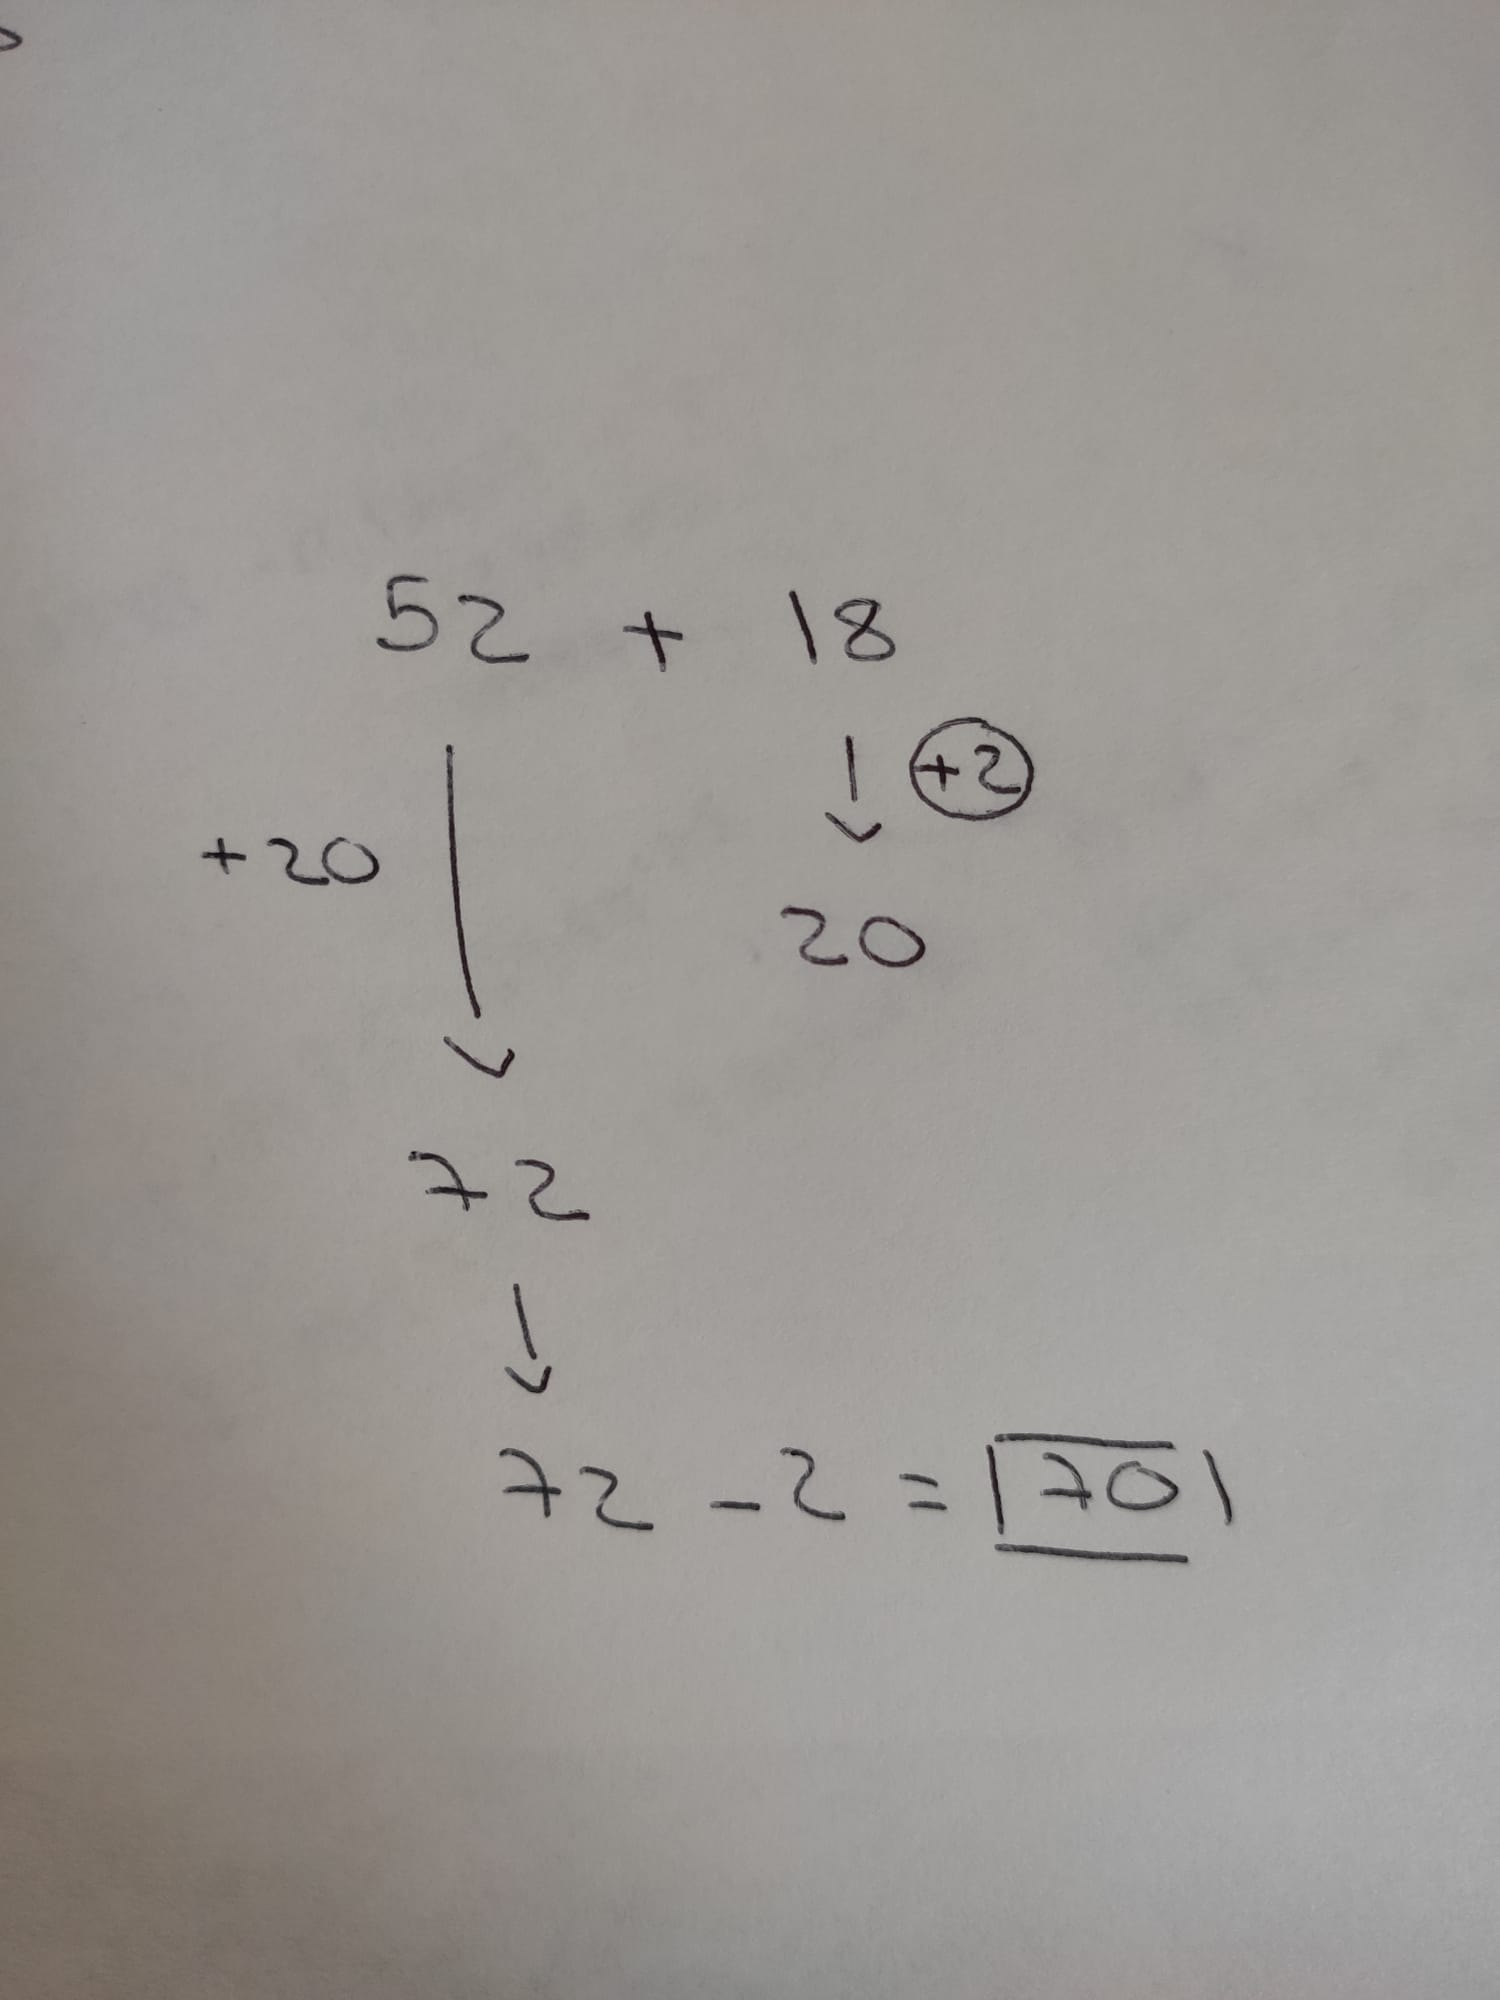 52 + 18
+2
+20
20
72
72 - 2 = 70